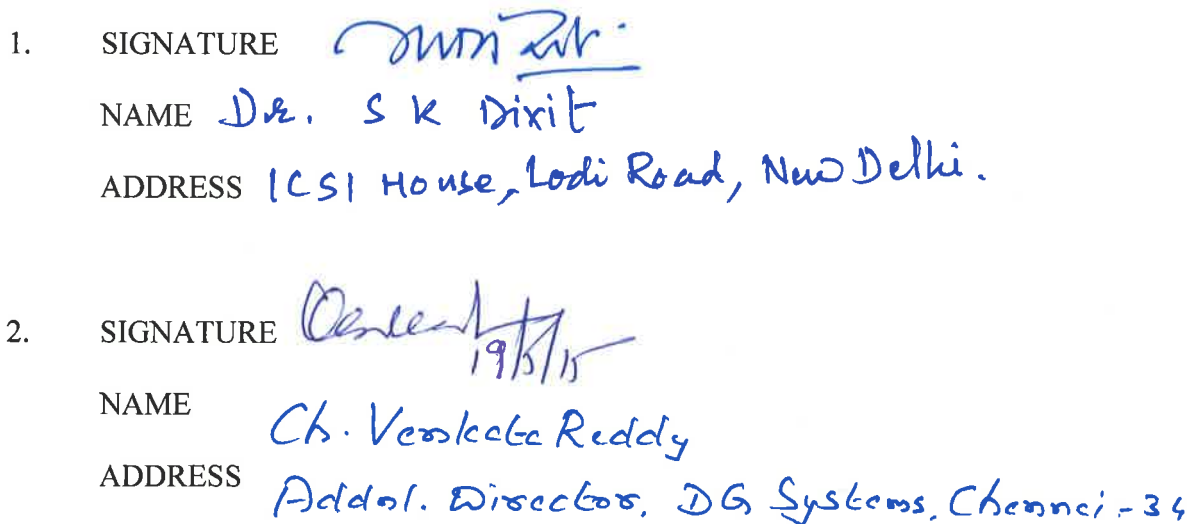 1. SIGNATURE
NAME Dr. S K Dixit
ADDRESS ICSI House, Lodi Road, New Delhi.
2. SIGNATURE
19/5/15
NAME Ch. Venkata Reddy
ADDRESS Addnl. Director, DG Systems, Chennai - 34